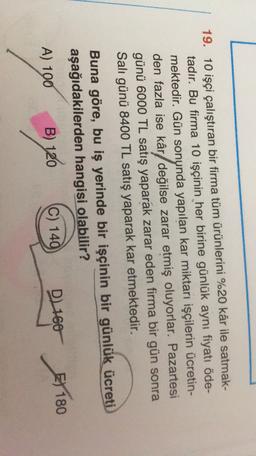 19. 10 işçi çalıştıran bir firma tüm ürünlerini %20 kâr ile satmak-
tadır. Bu firma 10 işçinin her birine günlük aynı fiyatı öde-
mektedir. Gün sonunda yapılan kar miktarı işçilerin ücretin-
den fazla ise kâr değilse zarar etmiş oluyorlar. Pazartesi
günü 6000 TL satış yaparak zarar eden firma bir gün sonra
Salı günü 8400 TL satış yaparak kar etmektedir.
Buna göre, bu iş yerinde bir işçinin bir günlük ücreti
aşağıdakilerden hangisi olabilir?
A) 100 B) 120 C) 140 D) 160 E) 180